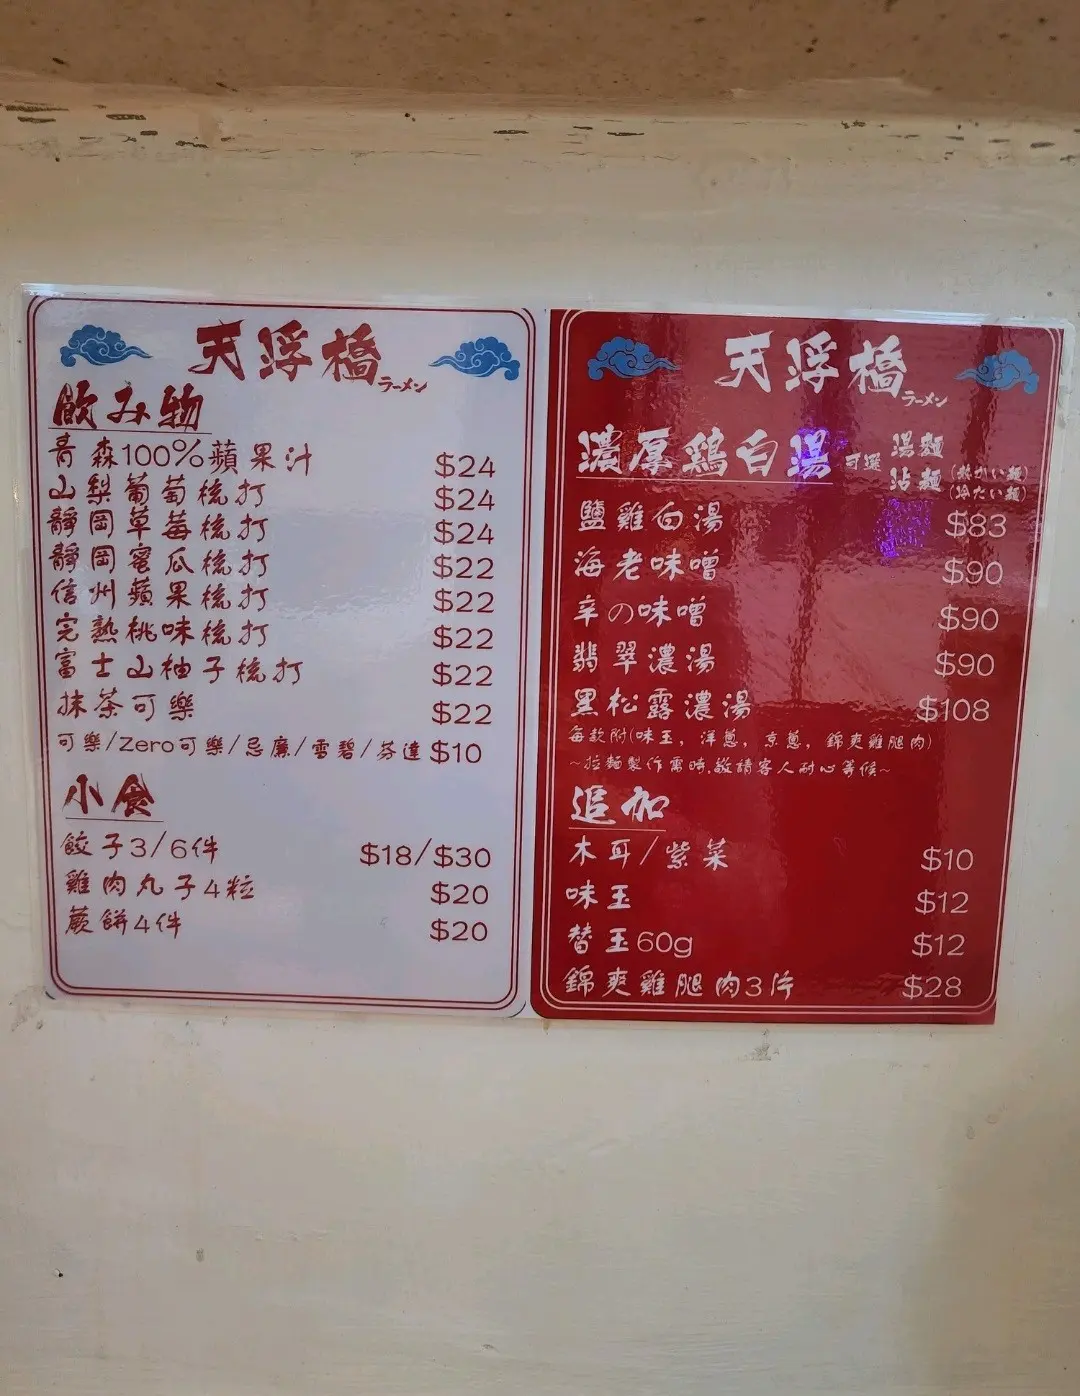 天浮橋
ラーメン
飲み物
青森100%蘋果汁 $24
山梨葡萄梳打 $24
靜岡草莓梳打 $24
靜岡蜜瓜梳打 $22
信州蘋果梳打 $22
完熟桃味梳打 $22
富士山柚子梳打 $22
抹茶可樂 $22
可樂/Zero可樂/忌廉/雪碧/芬達 $10
小食
餃子3/6件 $18/$30
雞肉丸子4粒 $20
蕨餅4件 $20
天浮橋
ラーメン
濃厚鶏白湯 可選 湯麵
沾麵 (熱かい麵)
(冷たい麵)
鹽雞白湯 $83
海老味噌 $90
辛の味噌 $90
翡翠濃湯 $90
黑松露濃湯 $108
每款附(味玉, 洋蔥, 京蔥, 錦爽雞腿肉)
~拉麵製作需時,敬請客人耐心等候~
追加
木耳/紫菜 $10
味玉 $12
替玉60g $12
錦爽雞腿肉3片 $28